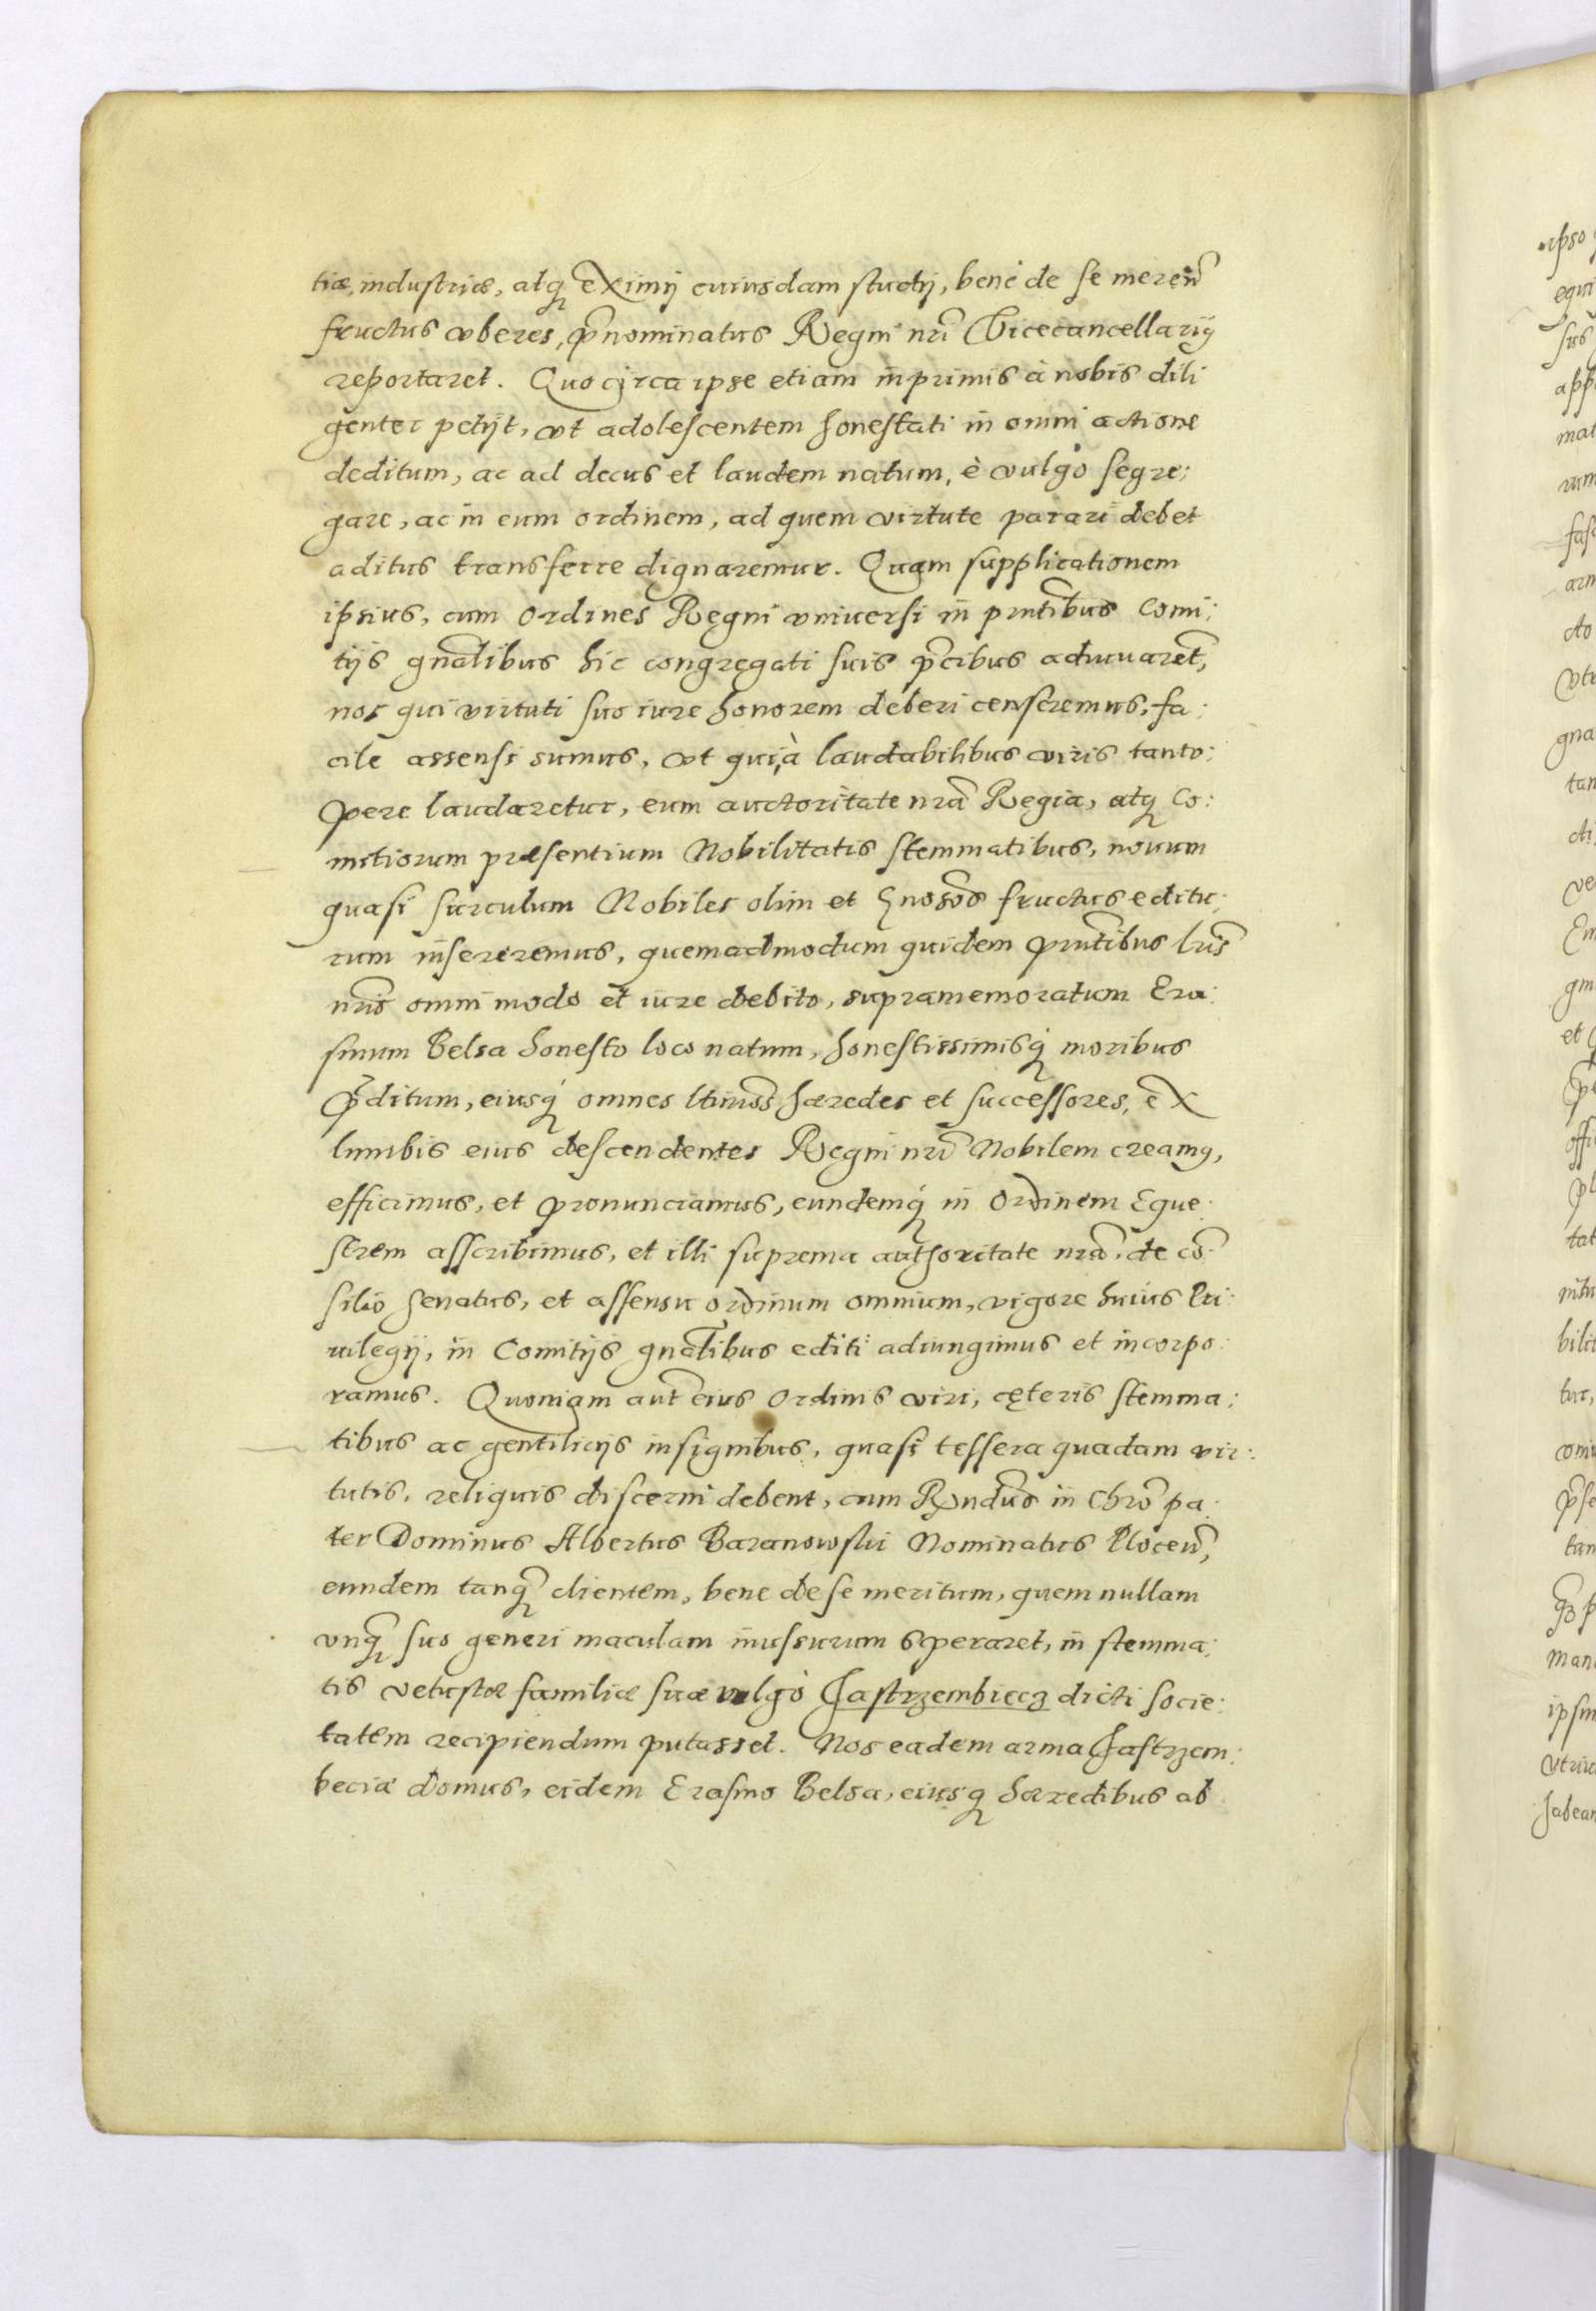 tiæ, industriæ, atq̨ eximij cuiusdam studij, bene de se mereñ
fructus vberes, p̃nominatus Regni nr̃i Vicecancellariꝯ
reportaret. Quocirca ipse etiam inprimis à nobis dili
genter petijt, vt adolescentem honestati in omni actione
deditum, ac ad decus et laudem natum, è vulgo segre:
gare, ac in eum ordinem, ad quem virtute parari debet
aditus transferre dignaremur. Quam supplicationem
ipsius, cum Ordines Regni vniuersi in pñtibus Comi:
tijs gñalibus hic congregati suis p̃cibus adiuuareñt,
nos qui virtuti suo iure honorem deberi censeremus, fa:
cile assensi sumus, vt qui à laudabilibus viris tanto:
pere laudaretur, eum auctoritate nr̃a Regia, atq̨ Co:
mitiorum præsentium Nobilitatis stemmatibus, nouum
quasi surculum Nobiles olim et gñosos fructus editu:
rum insereremus, quemadmodum quidem pñtibus lr̃is
nr̃is omni modo et iure debito, supramemoratum Era:
smum Belsa honesto loco natum, honestissimisq̨ moribus
p̃ditum, eiusq̨ omnes ltimos̃ hæredes et successores, ex
lumbis eius descendentes Regni nr̃i Nobilem creamꝯ,
efficimus, et pronunciamus, eundemq̨ in Ordinem Eque:
strem asscribimus, et illi suprema authoritate nr̃a, de cõ:
silio senatus, et assensu ordinum omnium, vigore huius Pri:
uilegij, in Comitijs gñalibus editi adiungimus et incorpo:
ramus. Quoniam aut̃ eius Ordinis viri, cęteris stemma:
tibus ac gentilicijs insignibus, quasi tessera quadam vir:
tutis, reliquis discerni debent, cum Rñdus in Chr̃o pa:
ter Dominus Albertus Baranowski Nominatus Ploceñ,
eundem tanq̃ clientem, bene de se meritum, quem nullam
vnq̃ suo generi maculam inussurum speraret, in stemma:
tis vetustæ familiæ suæ vulgò Jastrzembiecz dicti socie:
tatem recipiendum putasset. Nos eadem arma Jastrzem:
beciæ domus, eidem Erasmo Belsa, eiusq̨ hæredibus ab